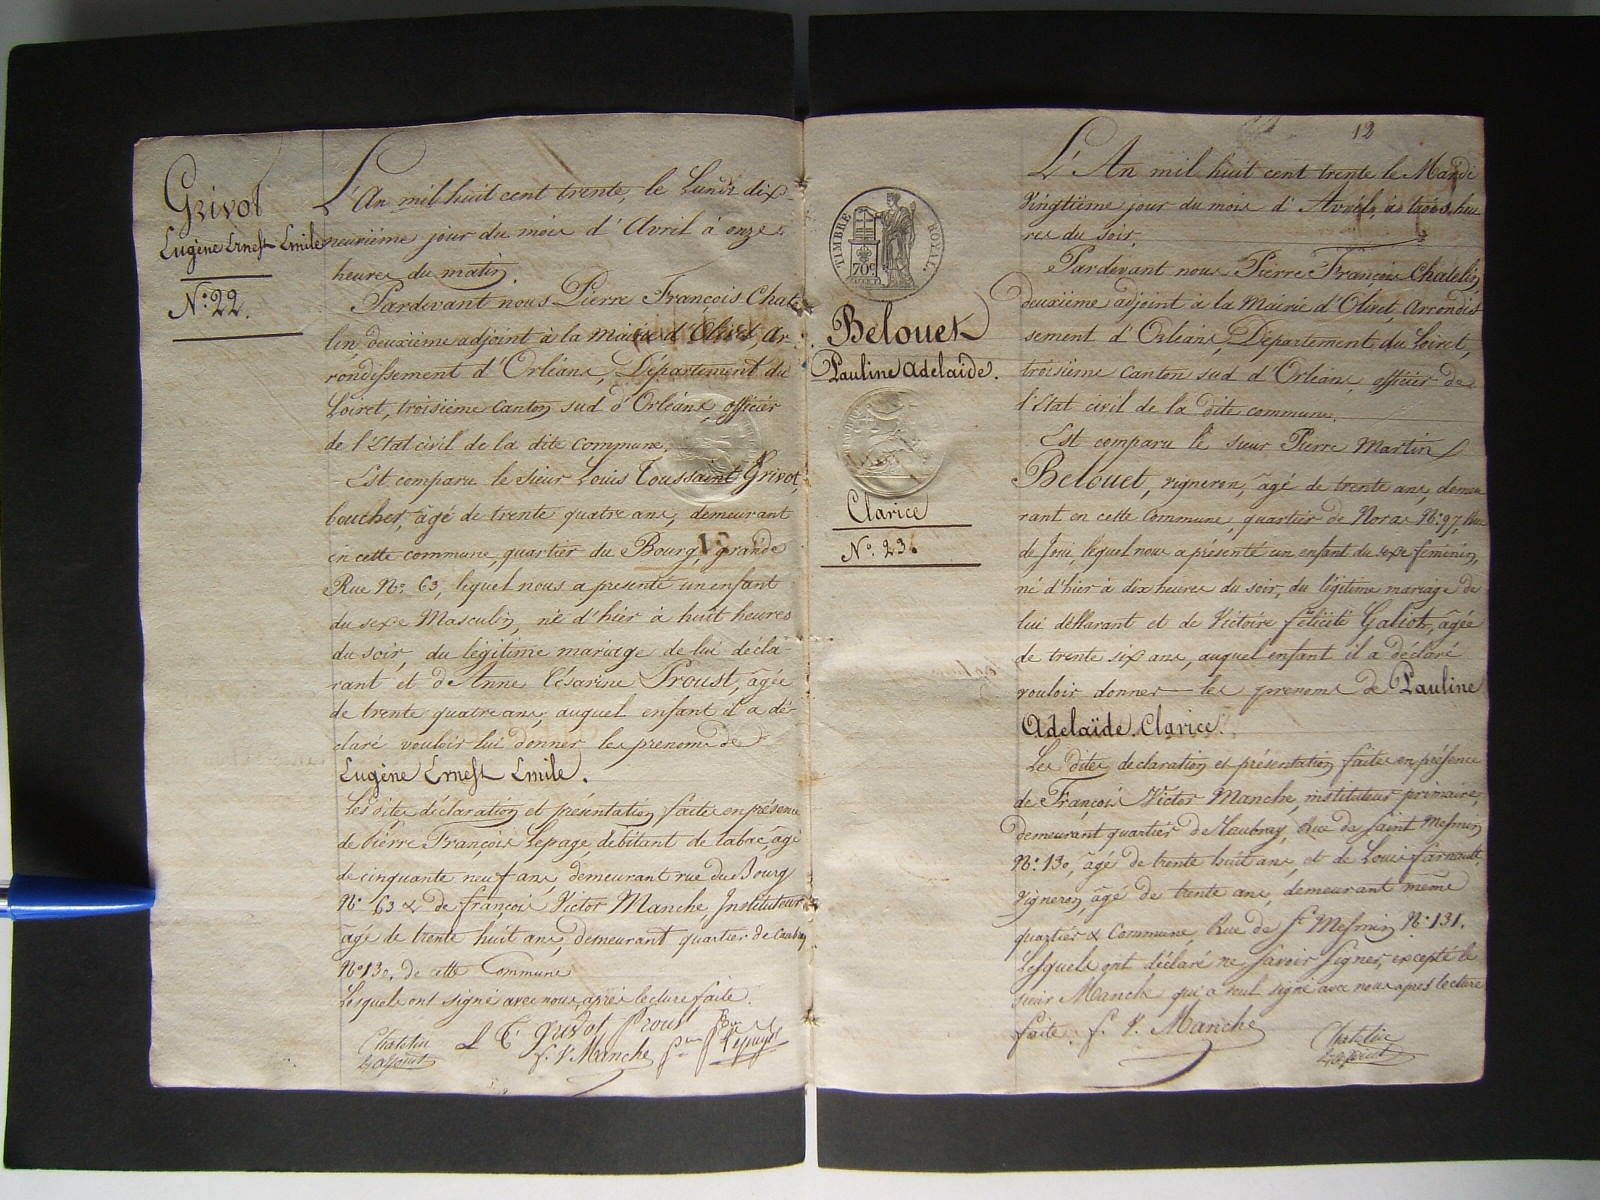 Grivot
Eugène Ernest Emile
N.° 22.
L'An mil huit cent trente, le Lundi dix-
neuvième jour du mois d'Avril à onze
heures du matin
Pardevant nous Pierre François Chate-
lin, deuxième adjoint à la Mairie d'Olivet, ar-
rondissement d'Orléans, Département du
Loiret, troisième Canton sud d'Orléans, officier
de l'Etat civil de la dite Commune.
Est comparu le sieur Louis Toussaint Grivot,
boucher, âgé de trente quatre ans, demeurant
en cette commune, quartier du Bourg, grande
Rue N.° 63, lequel nous a presenté un enfant
du sexe Masculin, né d'hier à huit heures
du soir, du légitime mariage de lui décla-
rant et d'Anne Césarine Proust, âgée
de trente quatre ans, auquel enfant il a dé-
claré vouloir lui donner les prenoms de
Eugène Ernest Emile.
Les dites déclaration et présentation faites en présence
de Pierre François Lepage, débitant de tabac, âgé
de cinquante neuf ans, demeurant rue du Bourg
N.° 63 & de françois Victor Manche, Instituteur
âgé de trente huit ans, demeurant quartier de
N.° 130. de cette Commune
Lesquels ont signé avec nous après lecture faite.
Chatelin L T grivot Proust
adjoint f. V. Manche Lepage
12
TIMBRE ROYAL.
70c
Belouet
Pauline Adelaide.
Clarice
N.° 23.
L'An mil huit cent trente le Mardi
Vingtième jour du mois d'Avril, à trois heu
res du soir.
Pardevant nous Pierre François Chatelin
deuxième adjoint à la Mairie d'Olivet, Arrondis
sement d'Orléans, Département du Loiret,
troisième Canton sud d'Orléans, officier de
l'Etat civil de la dite commune.
Est comparu le sieur Pierre Martin
Belouet, vigneron, âgé de trente ans, demeu
rant en cette Commune, quartier de Noras N.° 97, Rue
de Joui, lequel nous a présenté un enfant du sexe féminin,
né d'hier à dix heures du soir, du légitime mariage de
lui déclarant et de Victoire félicité Galiot, âgée
de trente six ans, auquel enfant il a déclaré
vouloir donner les prenoms de Pauline
Adelaïde. Clarice.
Les dites declaration et présentation faites en présence
de François Victor Manche, instituteur primaire,
demeurant quartier de Caubray, Rue de Saint Mesmin
N.° 130, âgé de trente huit ans, et de Louis farnault,
vigneron, âgé de trente ans, demeurant même
quartier & Commune, Rue de St Mesmin N.° 131.
Lesquels ont déclaré ne savoir signer, excepté le
sieur Manche qui a seul signé avec nous après lecture
faite. f. V. Manche Chatelin
adjoint